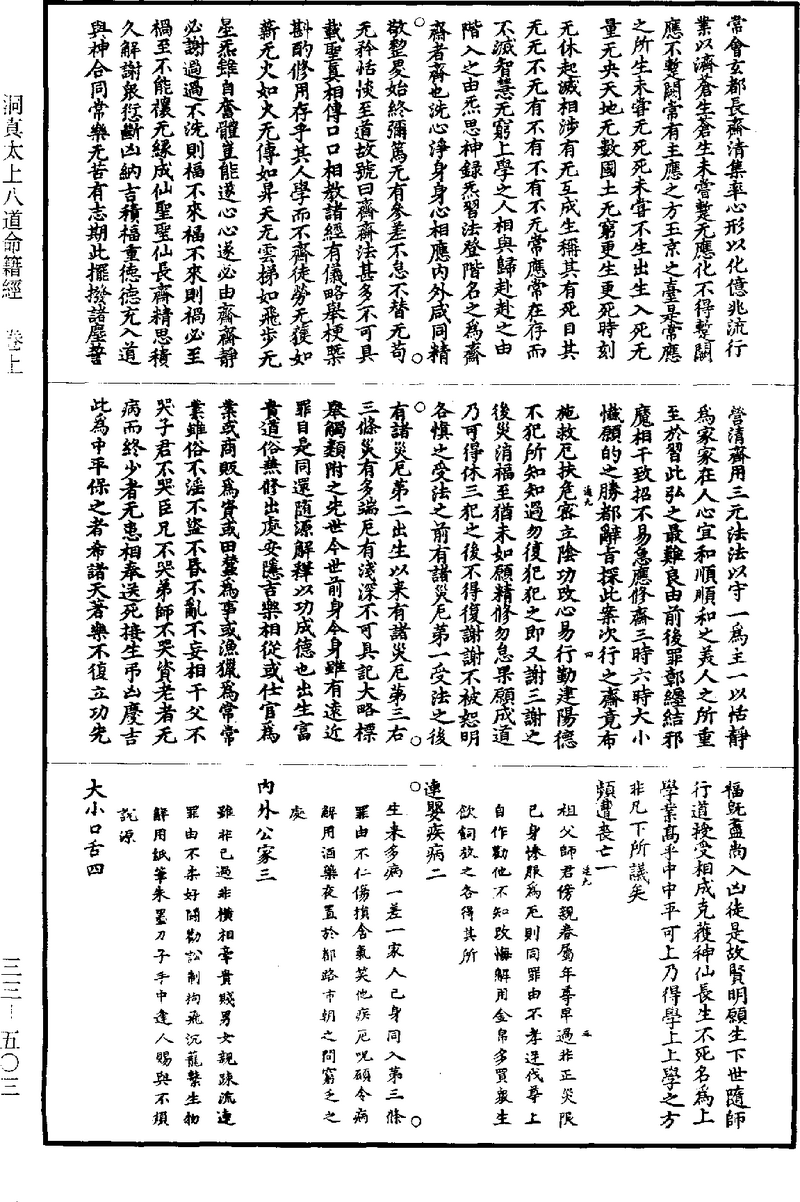 常會玄都長齋清集率心形以化億兆流行
業以濟蒼生蒼生未嘗蹔无應化不得蹔闕
應不蹔闕常有主應之方玉京之臺是常應
之所生未嘗无死死未嘗不生出生入死无
量无央天地无數國土无窮更生更死時刻
无休起滅相涉有无互成生稱其有死日其
无无不无有不有不有不无常應常在存而
不滅智慧无窮上學之人相與歸赴赴之由
階入之由炁思神録炁習法登階名之爲齋
齋者齊也洗心淨身身心相應內外咸同精
敬整晏始終彌篤无有參差不怠不替无苟
无矜恬惔至道故號曰齋齋法甚多不可具
載聖真相傳口口相教諸經有儀略舉梗槩
斟酌修用存乎其人學而不齋徒勞无獲如
薪无火如火无傳如昇天无雲梯如飛步无
星炁雖自奮體豈能遂心心遂必由齋齋靜
必謝過過不洗則福不來福不來則禍必至
禍至不能禳无緣成仙聖聖仙長齋精思積
久解謝衆愆斷凶納吉積福重德德充入道
與神合同常樂无苦有志期此擺撥諸塵誓
營清齋用三元法法以守一爲主一以恬靜
爲家家在人心宜和順順和之美人之所重
至於習此弘之最難良由前後罪鄣纏結邪
魔相干致招不易急應修齋三時六時大小
懺願的之勝都辭旨採此案次行之齋竟布
施救厄扶危密立陰功改心易行勤建陽德
不犯所知知過勿復犯犯之即又謝三謝之
後災消福至猶未如願精修勿息果願成道
乃可得休三犯之後不得復謝謝不被恕明
各慎之受法之前有諸災厄第一受法之後
有諸災厄第二出生以來有諸災厄第三右
三條災有多端厄有淺深不可具記大略標
舉觸類附之先世今世前身今身雖有遠近
罪目是同還隨源解釋以功成德也出生富
貴道俗兼修出處安隱吉樂相從或仕官爲
業或商販爲資或田蠶爲事或漁獵爲常常
業雖俗不淫不盜不昏不亂不妄相干父不
哭子君不哭臣兄不哭弟師不哭資老者无
病而終少者无患相奉送死接生弔凶慶吉
此爲中平保之者希諸天著樂不復立功先
福旣盡尚入凶徒是故賢明願生下世隨師
行道授受相成克獲神仙長生不死名爲上
學業髙乎中中平可上乃得學上上學之方
非凡下所議矣
頻遭喪亡一
祖父師君傍親眷屬年尊早過非正災限
己身慘服爲厄則同罪由不孝逆伐尊上
自作勸他不知改悔解用金帛多買衆生
飲飼放之各得其所
連嬰疾病二
生来多病一差一家人己身同入第三條
罪由不仁傷損含氣笑他疾厄呪碩令病
解用酒藥夜置於都路市朝之間窮乏之
處
內外公家三
雖非己過非橫相牽貴賤男女親踈流連
罪由不柔好鬪勸訟制拘飛沉籠繫生物
解用紙筆朱墨刀子手中逢人賜與不須
說源
大小口舌四
洞真太上八道命籍經　卷上
三三—五〇三